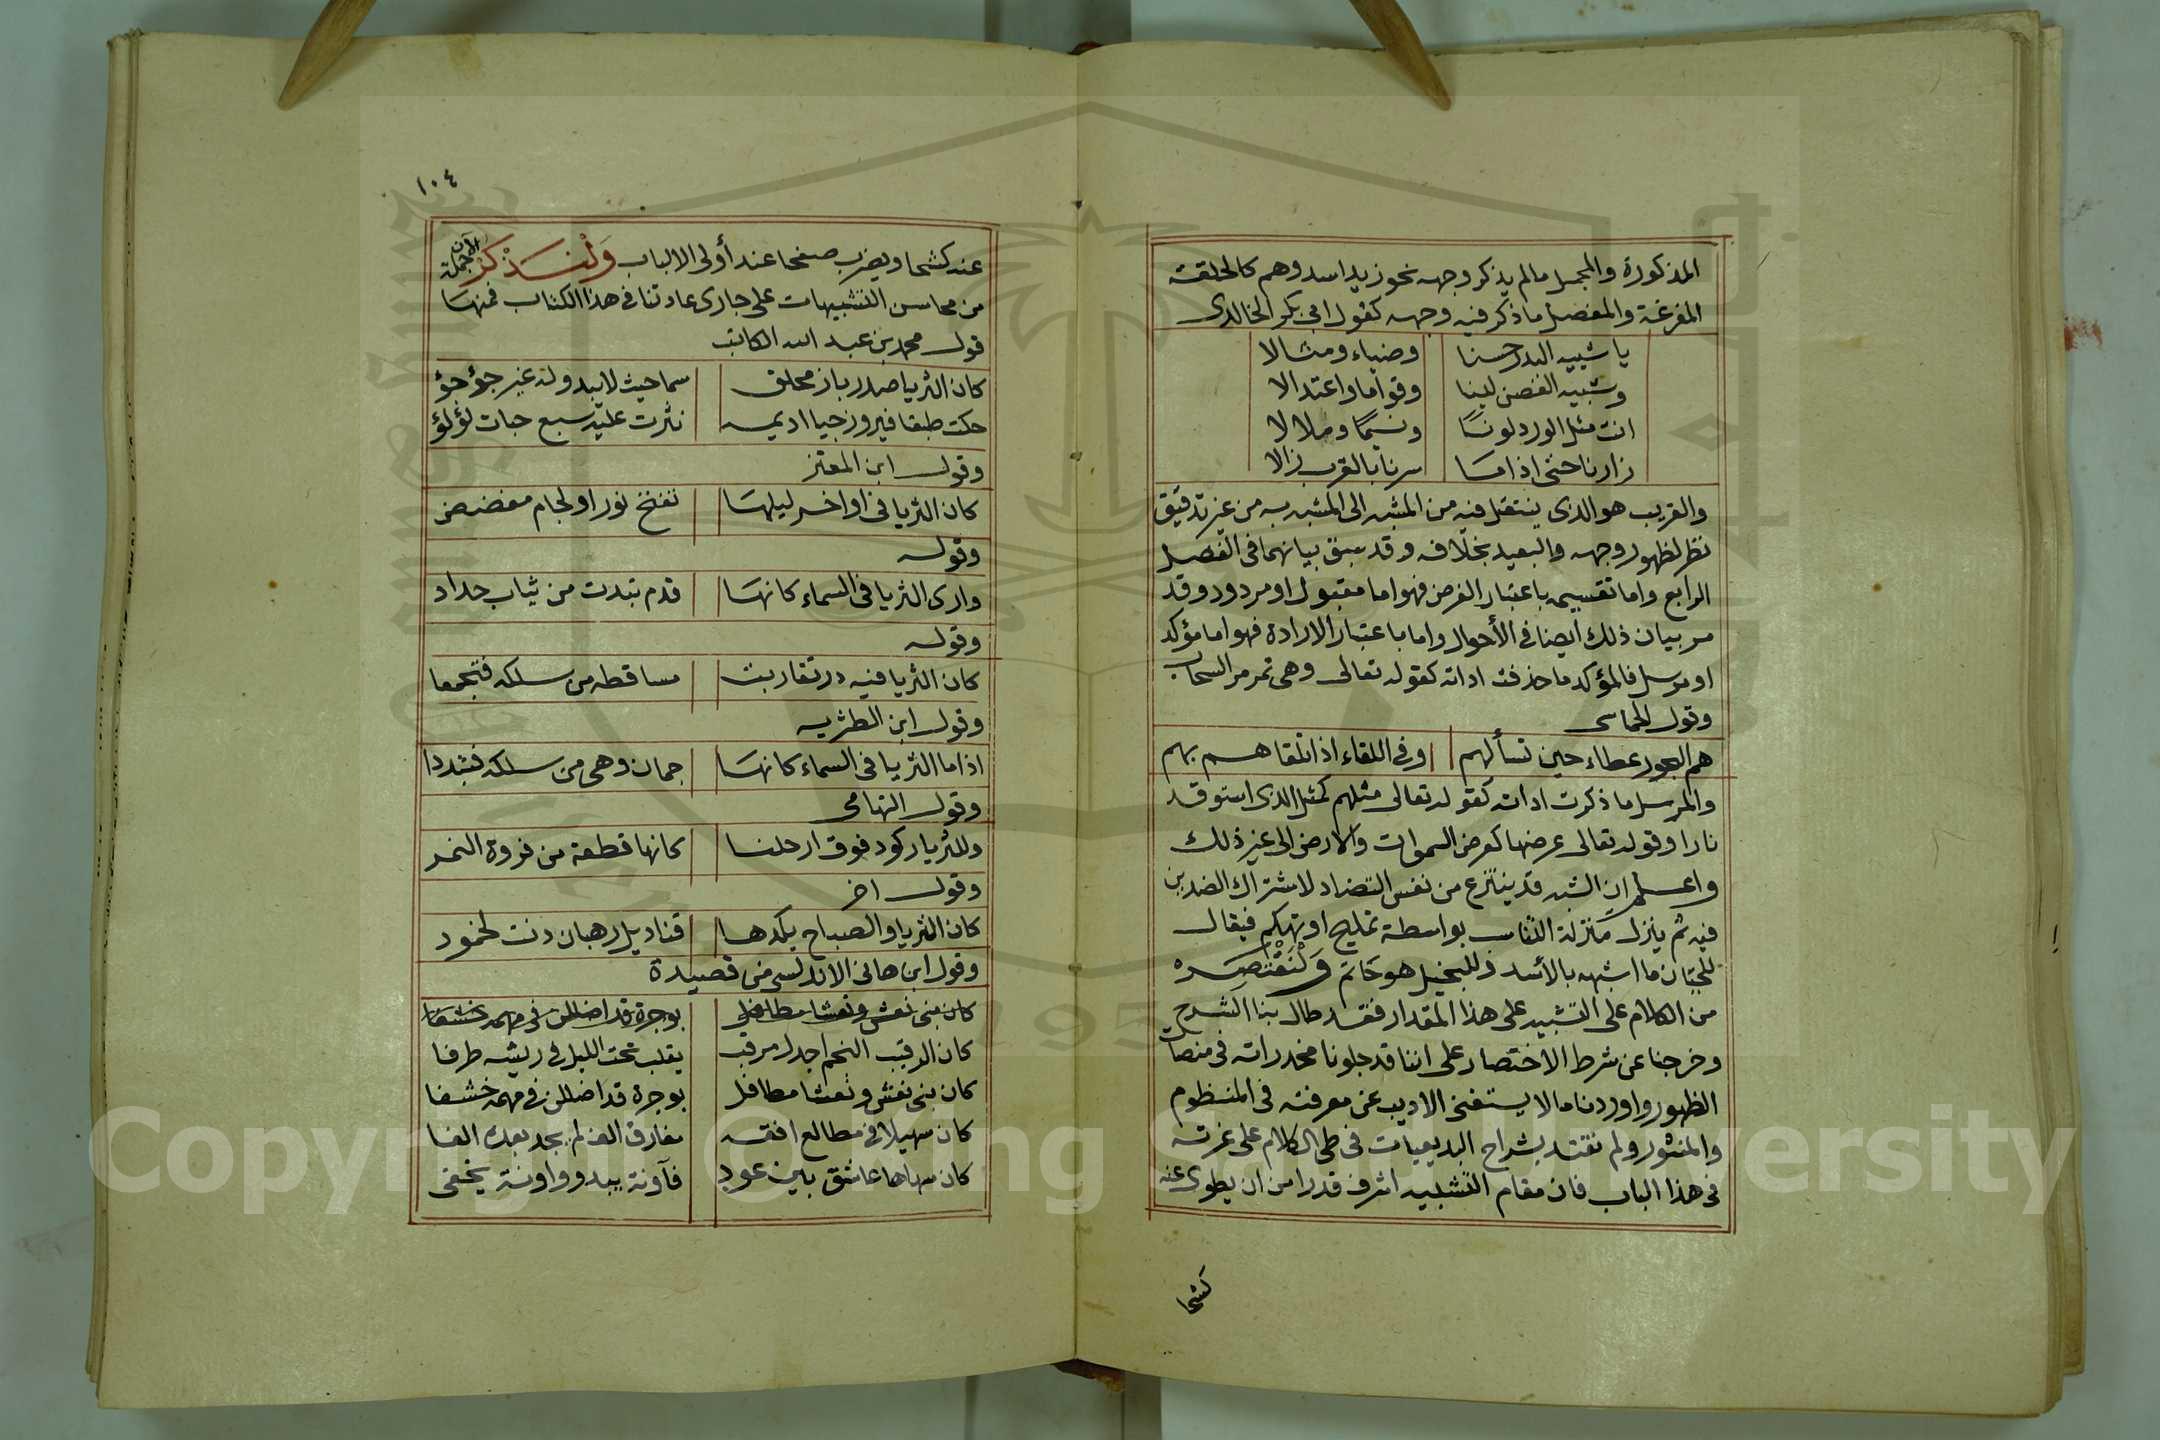 المذكورة والمجمل مالم يذكر وجهه نحو زيد اسد وهم كالحلقة
المفرغة والمفصل ما ذكر فيه وجهه كقول ابى بكر الخالدى
يا شبيه البدر حسنا وضياء ومثالا
وشبيه الغصن لينا وقواما واعتدالا
انت مثل الورد لونًا ونسيمًا وملالا
زارنا حتى اذا ما سرنا بالقرب زالا
والقريب هو الذى ينتقل فيه من المشبه الى المشبه به من غير تدقيق
نظر لظهور وجهه والبعيد بخلافه وقد سبق بيانهما فى الفصل
الرابع واما تقسيمه باعتبار الغرض فهو اما مقبول او مردود وقد
مر بيان ذلك ايضا فى الأحوال واما باعتبار الارادة فهو اما مؤكد
او مرسل فالمؤكد ما حذفت اداته كقوله تعالى وهى تمر مر السحاب
وقول الحماسى
هم البحور عطاء حين تسألهم وفى اللقاء اذا تلقاهم بهم
والمرسل ما ذكرت اداته كقوله تعالى مثلهم كمثل الذى استوقد
نارا وقوله تعالى عرضها كعرض السموات والارض الى غير ذلك
واعلم ان الشبه قد ينتزع من نفس التضاد لاشتراك الضدين
فيه ثم ينزل منزلة التناسب بواسطة تمليح او تهكم فيقال
للجبان ما اشبهه بالأسد وللبخيل هو حاتم ولنقتصره
من الكلام على التشبيه على هذا المقدار فقد طال بنا الشرح
وخرجنا عن شرط الاختصار على اننا قد جلونا مخدراته فى منصات
الظهور واوردنا ما لا يستغنى الاديب عن معرفته فى المنظوم
والمنثور ولم نقتد بشراح البديعيات فى طى الكلام على غرته
فى هذا الباب فان مقام التشبيه اشرف قدرا من ان يطوى عنه
كشحا
١٠٤
عند كشحا ويضرب صفحا عند أولى الالباب وَلْنَذْكُرْ الآن جملة
من محاسن التشبيهات على جارى عادتنا فى هذا الكتاب فمنها
قول محمد بن عبد الله الكاتب
كان الثريا صدر باز محلق سما حيث لا يبدو له غير جؤجؤ
حكت طبقا فيروزجيا اديمه نثرت عليه سبع حبات لؤلؤ
وقول ابن المعتز
كان الثريا فى اواخر ليلها تفتح نور او لجام مفضض
وقوله
وارى الثريا فى السماء كانها قدم تبدت من ثياب حداد
وقوله
كان الثريا فيه در تقاربت مساقطه من سلكه فتجمعا
وقول ابن الطثريه
اذا ما الثريا فى السماء كانها جمان وهى من سلكه فتبددا
وقول التهامى
وللثريا ركود فوق ارحلنا كانها قطعة من فروة النمر
وقول اخر
كان الثريا والصباح يكدها قناديل رهبان دنت لخمود
وقول ابن هانى الاندلسى من قصيدة
كان بنى نعش ونعشا مطافل بوجرة قد اضللن فى مهمه خشفا
كان الرقيب النجم اجدل مرقب يقلب تحت الليل فى ريشه طرفا
كان بنى نعش ونعشا مطافل بوجرة قد اضللن فى مهمه خشفا
كان سهيلا فى مطالع افقه مفارق الف لم يجد بعده الفا
كان سهاها عاشق بين عود فآونة يبدو واونة يخفى
Copyright © King Saud University
195